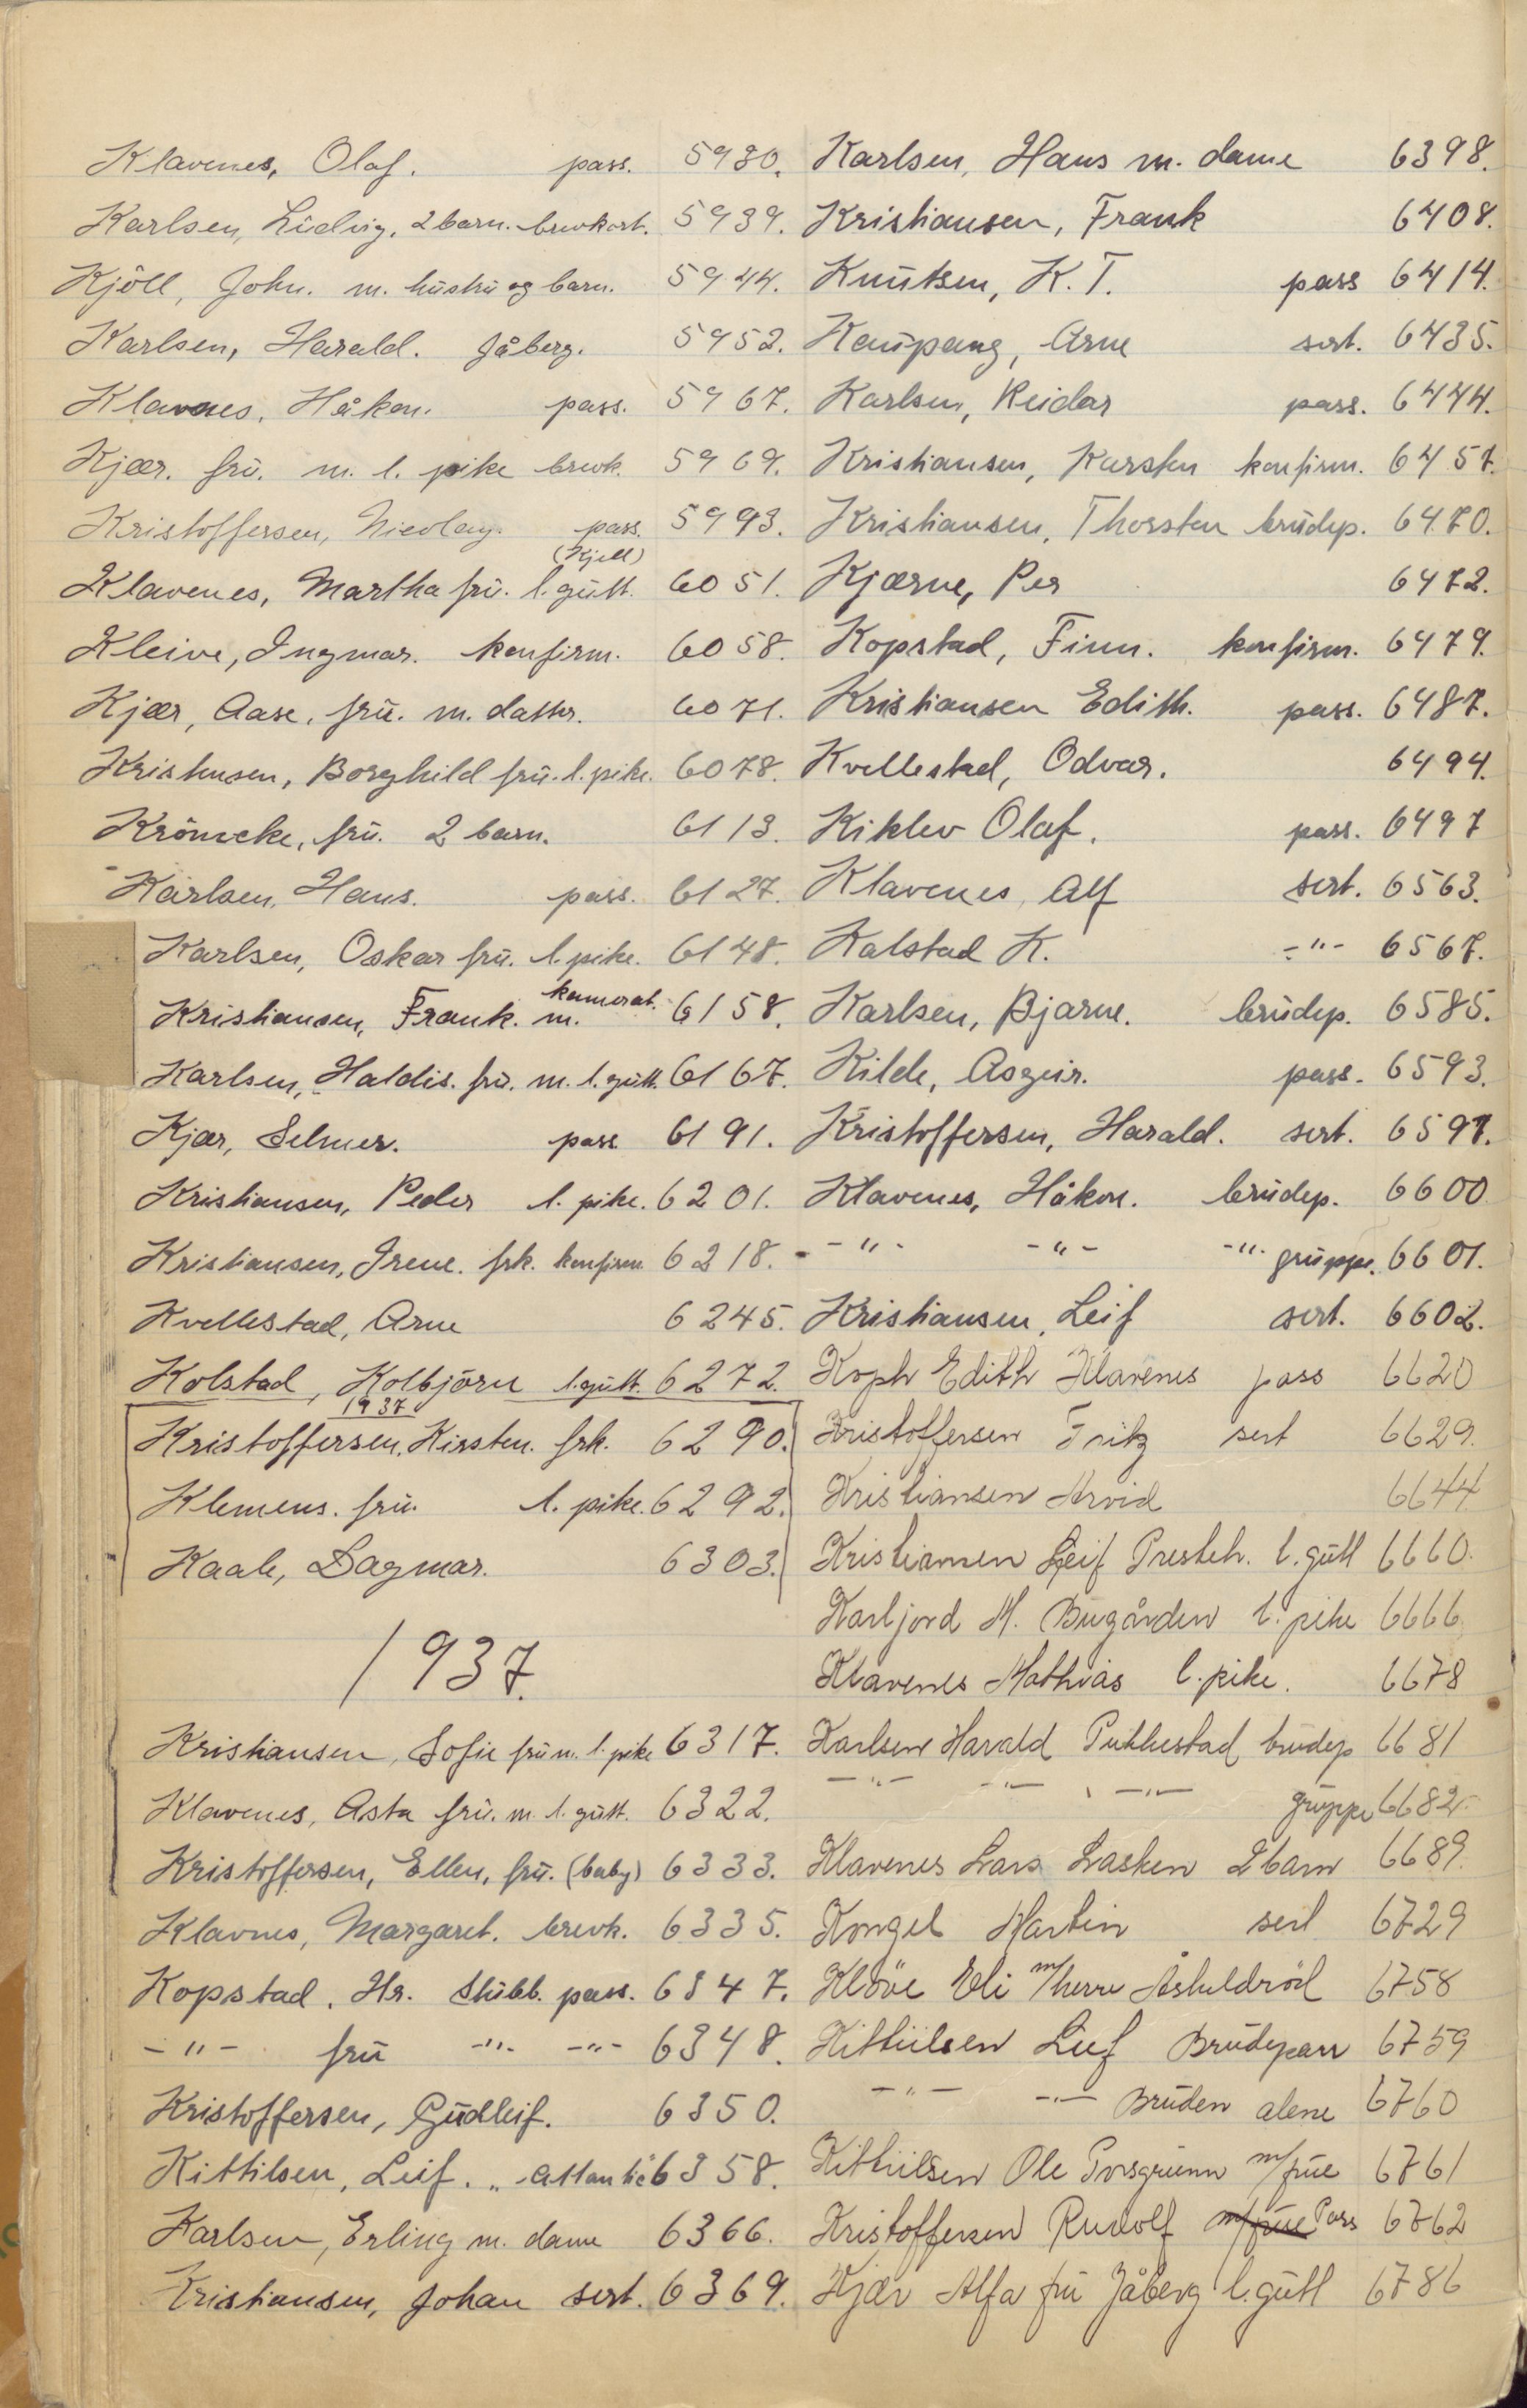 Klavenes, Olaf. pass. 5930.
Karlsen, Ludvig. 2 barn. brevkort. 5939.
Kjöll, John. m. hustru og barn. 5944.
Karlsen, Harald. Jåberg. 5952.
Klavnes, Håkon. pass. 5967.
Kjær. frü. m. l. pike brevk. 5969.
Kristoffersen, Nicolay. pass. 5993.
(Kjell)
Klavenes, Martha frü. l. gütt. 6051.
Kleive, Ingmar. konfirm. 6058.
Kjær, Aase, frü. m. datter. 6071.
Kristensen, Borghild frü. l. pike. 6078.
Krönecke, frü. 2 barn. 6113.
Karlsen, Hans. pass. 6127.
Karlsen, Oskar frü. l. pike. 6148.
Kristiansen, Frank. m. kamerat. 6158.
Karlsen, Haldis. frü. m. l. gütt. 6167.
Kjær, Selmer. pass 6191.
Kristiansen, Peder l. pike. 6201.
Kristiansen, Irene. frk. konfirm 6218.
Kvellestad, Arne 6245.
Kolstad, Kolbjörn l. gütt. 6272.
1937
Kristoffersen, Kirsten. frk. 6290.
Klemens. frü. l. pike. 6292.
Kaale, Dagmar. 6303.
1937.
Kristiansen, Sofie frü m. l. pike 6317.
Klavenes, Asta frü. m. l. gütt. 6322.
Kristoffersen, Ellen, frü. (baby) 6333.
Klavnes, Margaret. brevk. 6335.
Kopstad, Hr. Stübb. pass. 6347.
-"- frü -"- -"- 6348.
Kristoffersen, Güdleif. 6350.
Kittilsen, Leif. "Atlantic" 6358.
Karlsen, Erling m. dame 6366.
Kristiansen, Johan sert. 6369.
Karlsen, Hans m. dame 6398.
Kristiansen, Frank 6408.
Knütsen, K. T. pass 6414.
Kaupang, Arne sert. 6435.
Karlsen, Reidar pass. 6444.
Kristiansen, Karsten konfirm. 6457.
Kristiansen, Thorsten brüdep. 6470.
Kjærne, Per 6472.
Kopstad, Finn. konfirm. 6479.
Kristiansen Edith. pass. 6487.
Kvellestad, Odvar. 6494.
Kiklev Olaf. pass. 6497
Klavenes, Alf sert. 6563.
Kalstad K. -"- 6567.
Karlsen, Bjarne. brüdep. 6585.
Kilde, Asgeir. pass. 6593.
Kristoffersen, Harald. sert. 6597.
Klavenes, Håkon. brüdep. 6600
-"- -"- -"- grüppe. 6601.
Kristiansen, Leif sert. 6602.
Koph Edith Klavenes pass 6620
Kristoffersen Fritz sert 6629.
Kristiansen Arvid 6644
Kristiansen Leif Presteh. l. gütt 6660.
Karljord M. Bügården l. pike 6666
Klavenes Mathias l. pike. 6678
Karlsen Harald Pukkestad brüdep 6681
-"- -"- -"- grüppe 6682
Klavenes Lars Lasken 2 barn 6689.
Kongel Martin sert 6729
Klöve Eli m/herre 6758
Kittülsen Leif Brüdepar 6759
-"- -"- Brüden alene 6760
Kittülsen Ole Porsgrunn m/früe 6761
Kristoffersen Rudolf m/früe Pass 6762
Kjær Alfa frü Jåberg l. gütt 6786